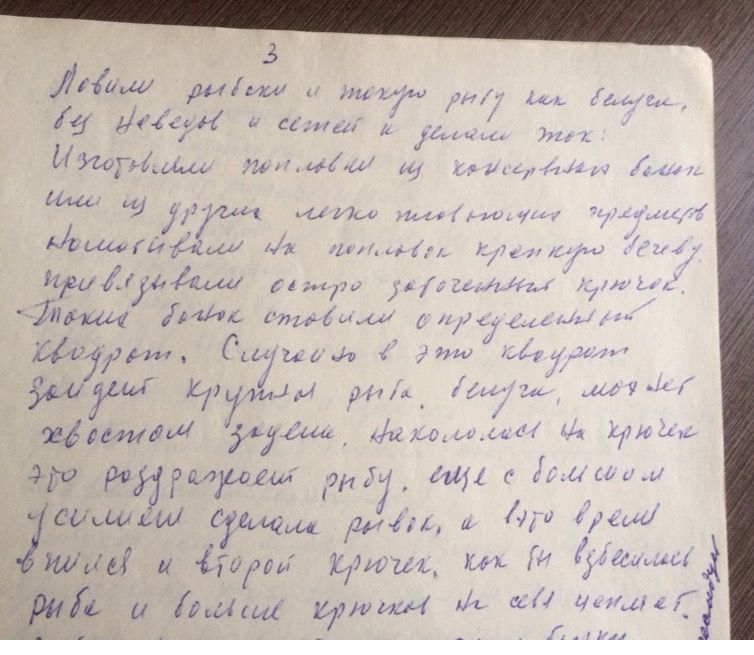 3
Ловили рыбаки и такую рыбу как белуга,
без неводов и сетей и делали так:
Изготовляли поплавки из консервных банок
или из других легко плавающих предметов
наматывали на поплавок крепкую бечеву
привязывали остро заточенный крючок.
Таких банок ставили определенный
квадрат. Случайно в это квадрат
зайдет крупная рыба белуга, может
хвостом задела, накололась на крючек
это раздражает рыбу, еще с большим
усилием сделала рывок, а в это время
впился и второй крючек, как бы взбесилась
рыба и больше крючков на себя цепляет.